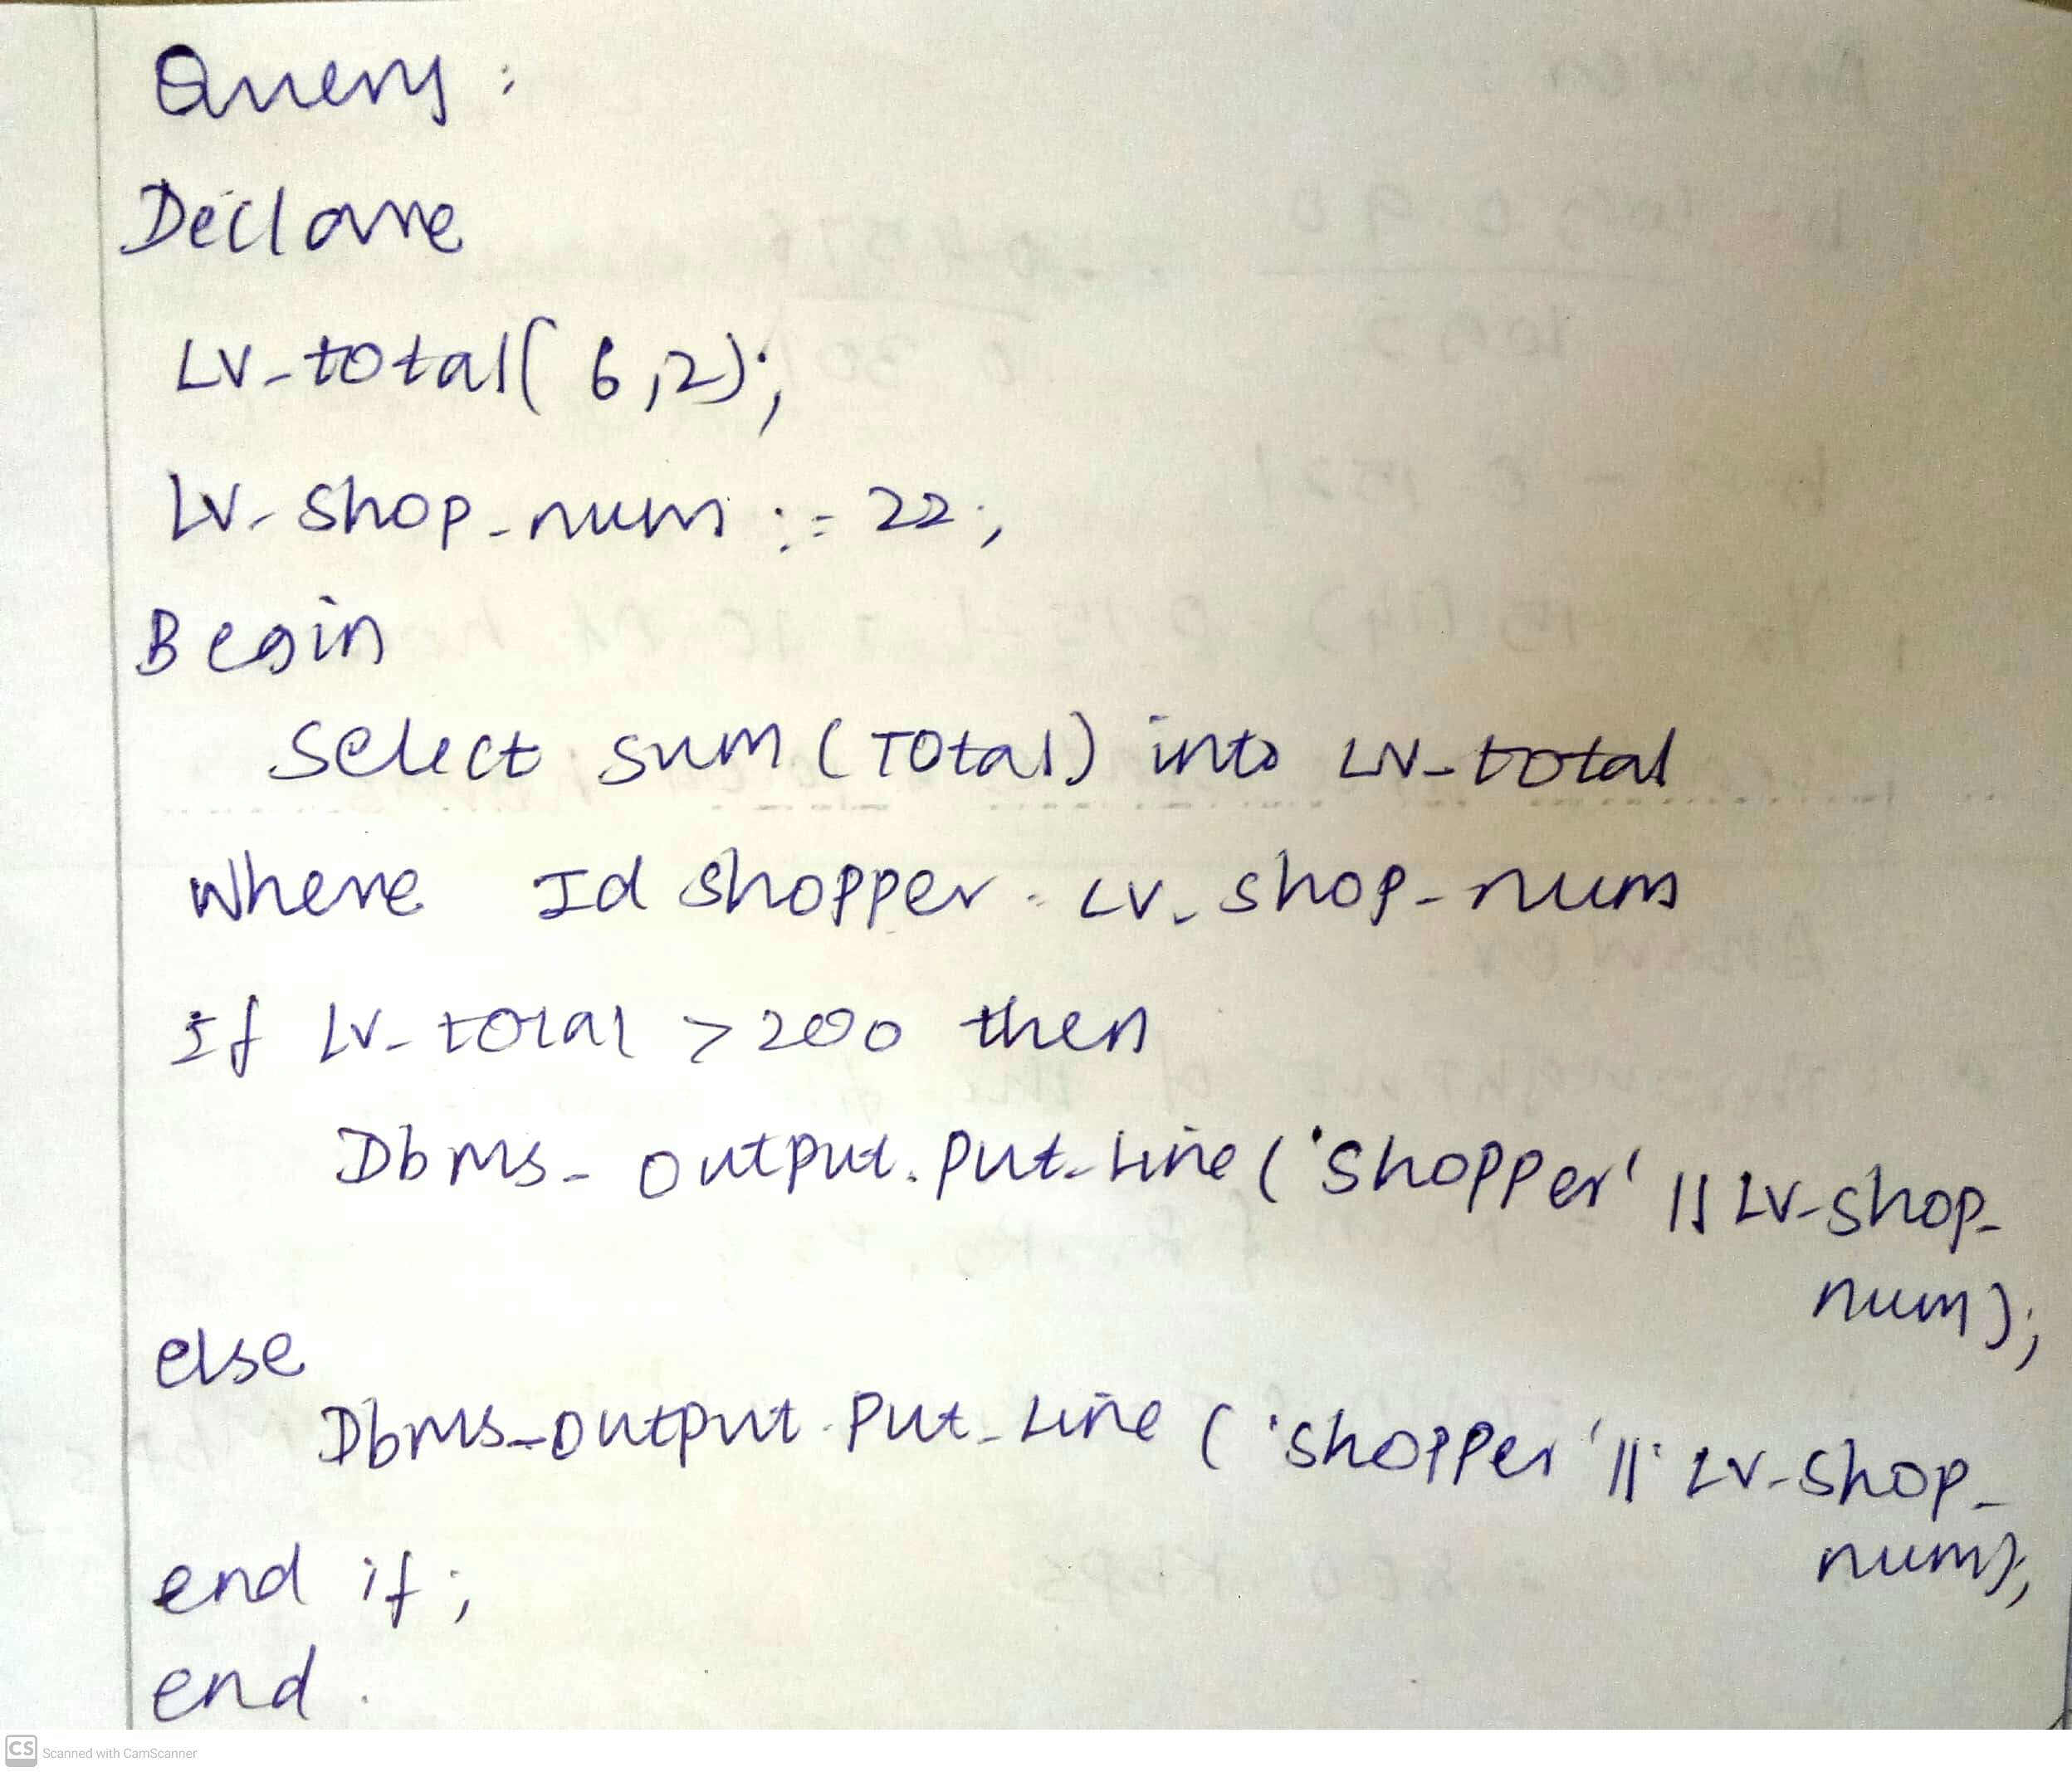 Query :
Declare
LV_total( 6,2);
LV_shop_num := 22;
Begin
Select sum (Total) into LV_total
Where Id shopper = LV_shop_num
If LV_total > 200 then
Dbms_output.put_Line ('Shopper' || LV_shop_
num);
else
Dbms_output.put_Line ('shopper' || LV_shop_
num);
end if;
end.
CS Scanned with CamScanner